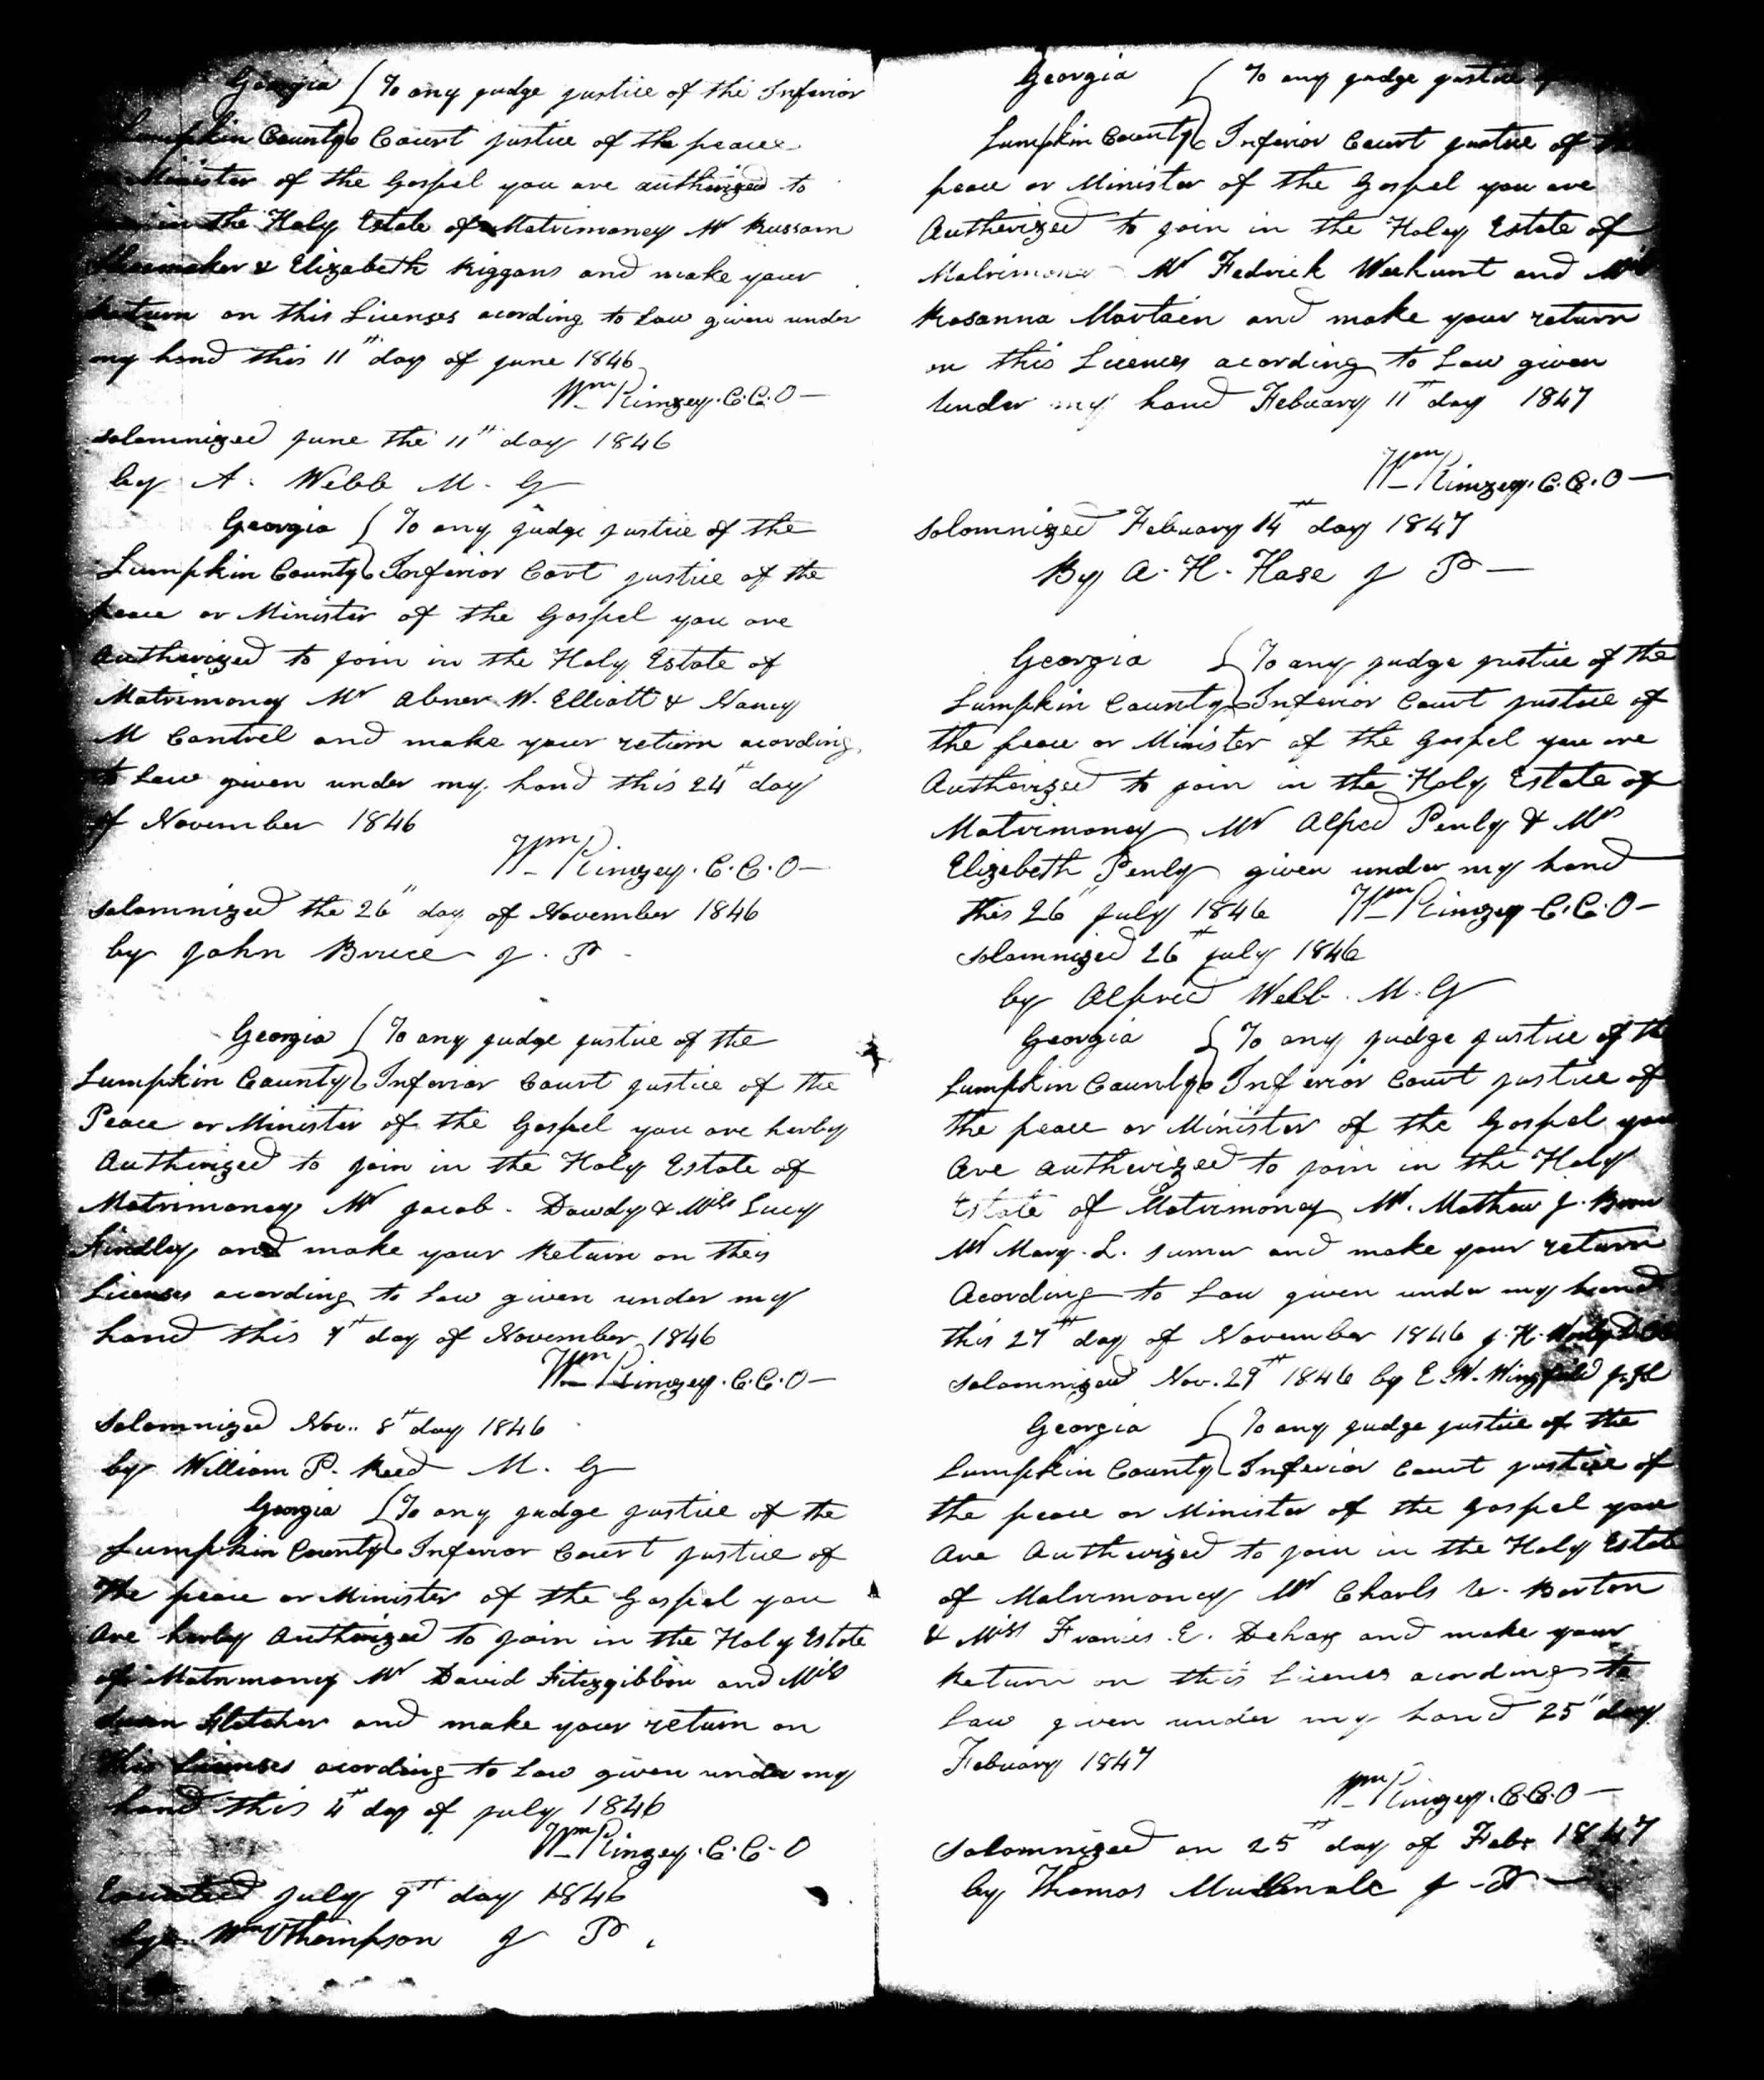 Georgia { To any judge justice of the Inferior
Lumpkin County } Court justice of the peace
Minister of the Gospel you are authorized to
in the Holy Estate of Matrimoney Mr Russom
Shoemaker & Elizabeth Riggans and make your
Return on this Licenses acording to Law given under
my hand this 11th day of june 1846
Wm Kimzey. C.C.O
solomnized june the 11" day 1846
by A. Webb M. G
Georgia { To any judge justice of the
Lumpkin County } Inferior Cort justice of the
peace or Minister of the Gospel you are
Autherized to join in the Holy Estate of
Matrimoney Mr Abner W. Elliott & Nancy
M Cantrel and make your return acording
to Law given under my hand this 24th day
of November 1846
Wm Kimzey. C.C.O
solomnized the 26" day of November 1846
by john Bruce J. P
Georgia { To any judge justice of the
Lumpkin County } Inferior Court justice of the
Peace or Minister of the Gospel you are herby
Autherized to join in the Holy Estate of
Matrimoney Mr jacob. Dowdy & Miss Lucy
Findley and make your Return on this
Licenses acording to Law given under my
hand this 7th day of November 1846
Wm Kimzey. C.C.O
Solomnized Nov.. 8th day 1846
by William P. Reed M. G
Georgia { To any judge justice of the
Lumpkin County } Inferior Court justice of
the peace or Minister of the Gospel you
Are herby Autherized to join in the Holy Estate
of Matrimoney Mr David Fitezgibbon and Miss
Fletcher and make your return on
this Licenses acording to Law given under my
hand this 4th day of july 1846
Wm Kimzey. C.C.O
Executed july 9th day 1846
by Wm Thompson J P.
Georgia { To any judge justice of
Lumpkin County } Inferior Court justice of the
peace or Minister of the Gospel you are
Autherized to join in the Holey Estate of
Matrimoney Mr Fedrick Wehunt and
Rosanna Martain and make your return
on this Licenses acording to Law given
Under my hand Febuary 11th day 1847
Wm Kimzey. C.C.O
Solomnized February 14th day 1847
By A. H. Hase J P
Georgia { To any judge justice of the
Lumpkin County } Inferior Court justice of
the peace or Minister of the Gospel you are
Autherized to join in the Holy Estate of
Matrimoney Mr Alfred Penly & Mrs
Elizebeth Penly given under my hand
this 26" july 1846 Wm Kimzey C.C.O
Solomnized 26th july 1846
by Alfred Webb. M. G
Georgia { To any judge justice of the
Lumpkin County } Inferior Court justice of
the peace or Minister of the Gospel you
Are autherized to join in the Holy
Estate of Matrimoney Mr. Mathew J.
Mary. L. and make your return
Acording to Law given under my hand
this 27th day of November 1846 J. H.
solomnized Nov. 29th 1846 by E. W. Wingfield
Georgia { To any judge justice of the
Lumpkin County } Inferior Court justice of
the peace or Minister of the Gospel you
Are Autherized to join in the Holy Estate
of Matrimoney Mr Charls W. Barton
& Miss Francies. E. Dehay and make your
Return on this Licenses acording to
Law given under my hand 25" day
Febuary 1847
Wm Kimzey. C.C.O
Solomnized on 25th day of Febr 1847
by Thomas J. P